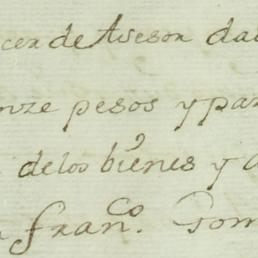 cer de Asesor da
nze pesos y par
delos bienes y a
fran.co Gom